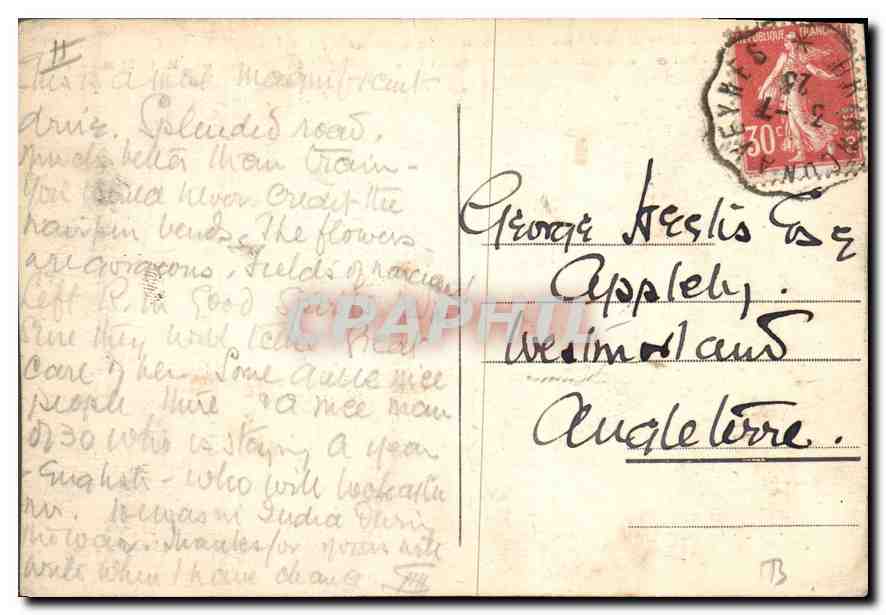 II
This is a most magnificent
drive. Splendid road.
Much better than train -
You would never credit the
hairpin bends. The flowers
are Fields of narcissi
Left R. in Good
Sure they will take great
care of her. Some nice
people there & a nice man
of 30 who is staying a year
- English - who will look after
her. He was in India during
the war. Thanks for your note
write when I have chance
George Heelis Esq
Appleby.
Westmorland
Angleterre.
REPUBLIQUE FRANCAISE
30c
3 - 7
25
CPAPHIL
B